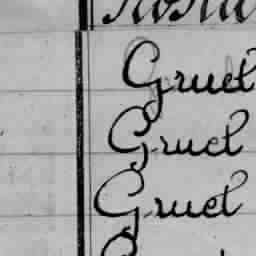 Gruel
Gruel
Gruel